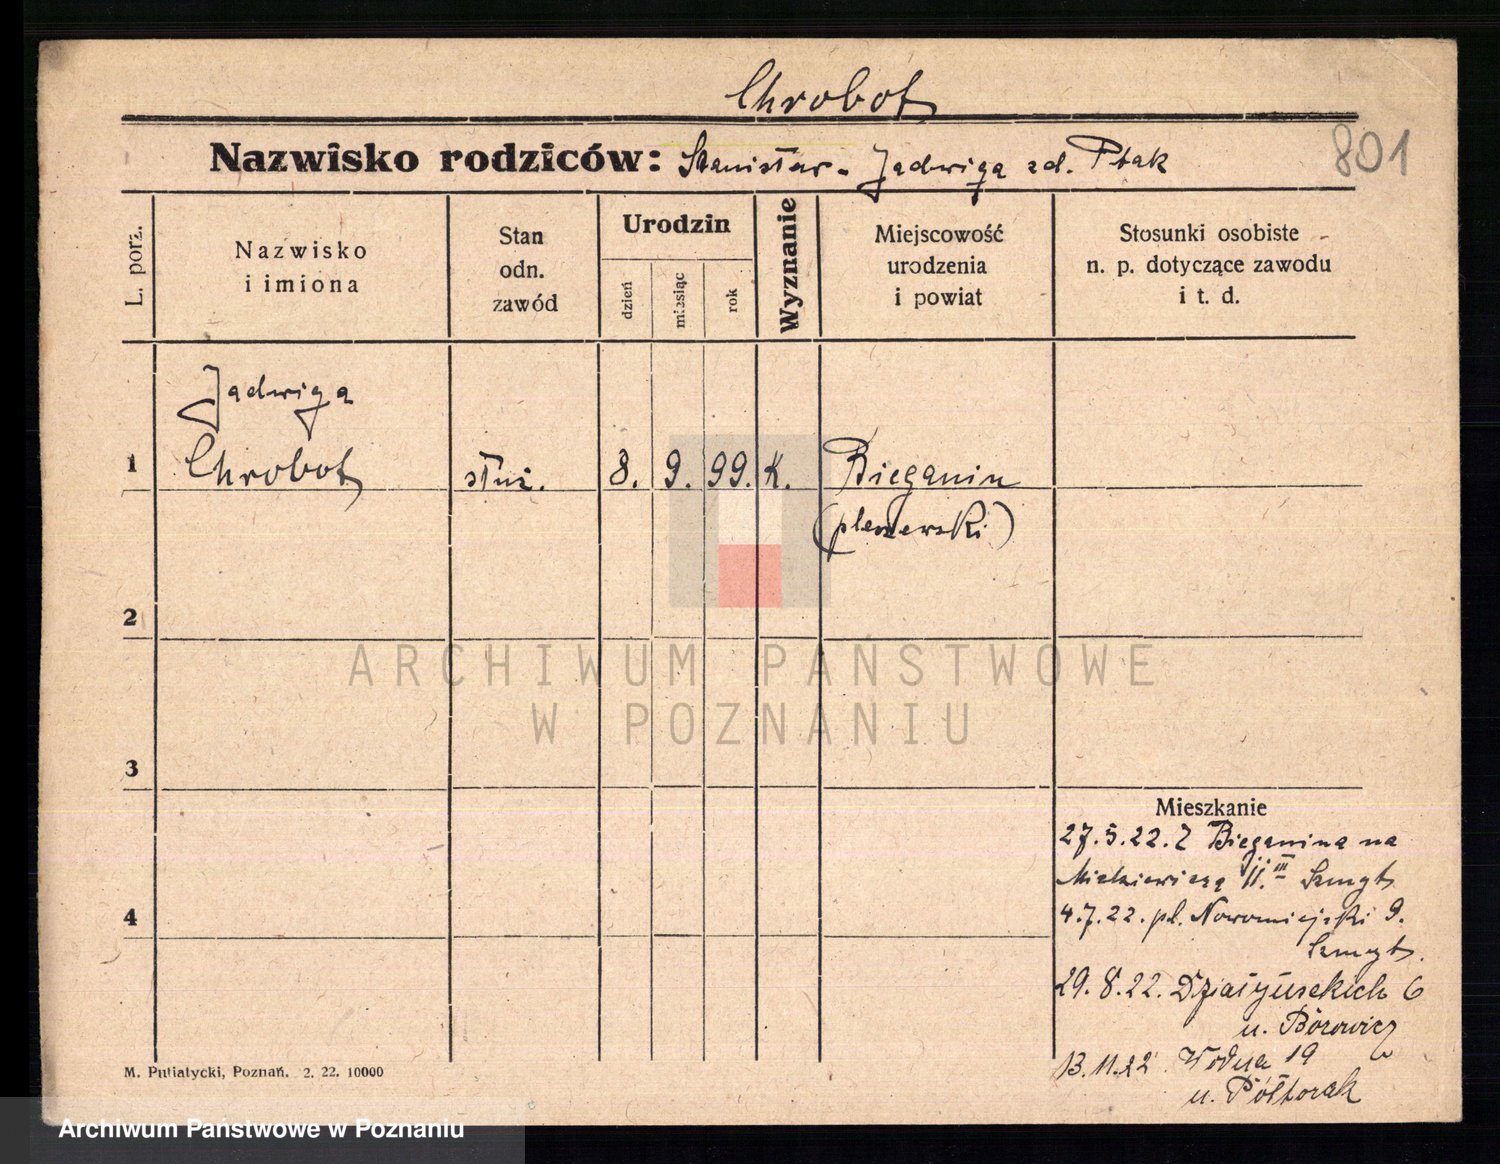 Chrobot
Nazwisko rodziców: Stanisław - Jadwiga zd. Ptak
801
L. porz.
Nazwisko
i imiona
Stan
odn.
zawód
Urodzin
dzień
miesiąc
rok
Wyznanie
Miejscowość
urodzenia
i powiat
Stosunki osobiste
n. p. dotyczące zawodu
i t. d.
Jadwiga
1 Chrobot służ. 8. 9. 99. K. Bieganin
(pleszewski)
2
ARCHIWUM PAŃSTWOWE
W POZNANIU
3
Mieszkanie
27.5.22. Z Bieganina na
Mickiewicza 11.III Szmyt
4
4.7.22. pl. Nowomiejski 9.
Szmyt.
29.8.22. Działyńskich 6
u. Borowicz
13.11.22 Wodna 19
u. Półtorak
M. Putiatycki, Poznań. 2. 22. 10000
Archiwum Państwowe w Poznaniu